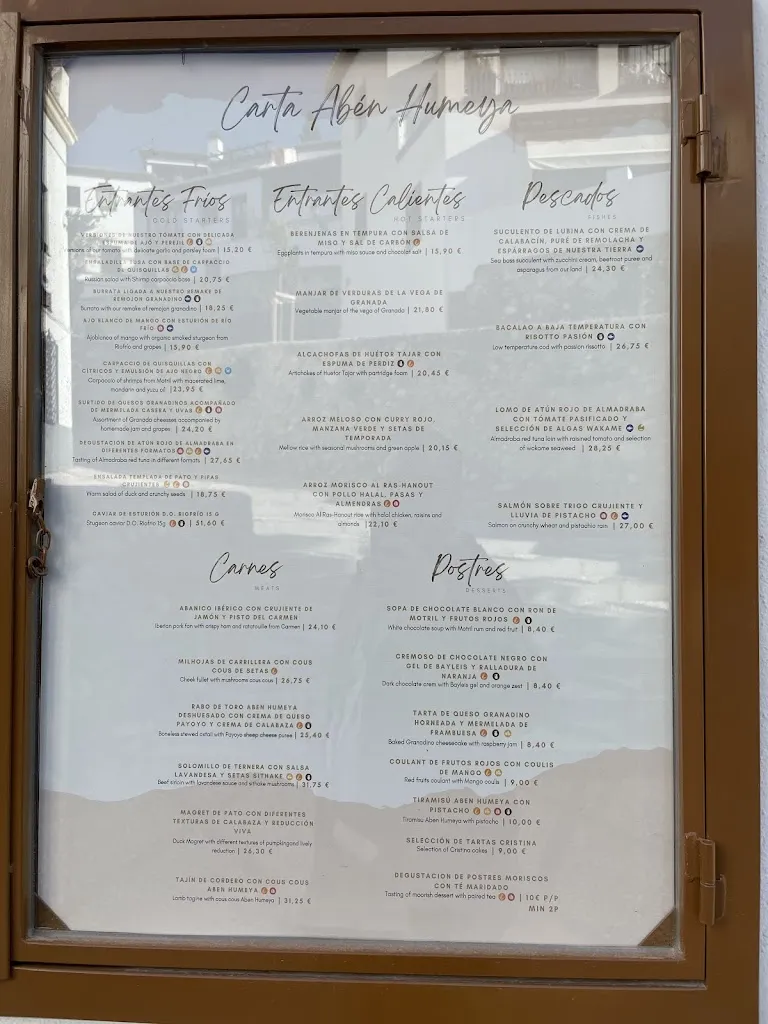 Carta Abén Humeya
Entrantes Fríos
COLD STARTERS
VERSIONES DE NUESTRO TOMATE CON DELICADA
ESPUMA DE AJO Y PEREJIL
versions of our tomato with delicate garlic and parsley foam | 15,20 €
ENSALADILLA RUSA CON BASE DE CARPACCIO
DE QUISQUILLAS
Russian salad with Shrimp carpaccio base | 20,75 €
BURRATA LIGADA A NUESTRO REMAKE DE
REMOJON GRANADINO
Burrata with our remake of remojon granadino | 18,25 €
AJO BLANCO DE MANGO CON ESTURIÓN DE RÍO
FRÍO
Ajoblanco of mango with organic smoked sturgeon from
Riofrío and grapes | 15,90 €
CARPACCIO DE QUISQUILLAS CON
CÍTRICOS Y EMULSIÓN DE AJO NEGRO
Carpaccio of shrimps from Motril with macerated lime,
mandarin and yuzu oil |23,95 €
SURTIDO DE QUESOS GRANADINOS ACOMPAÑADO
DE MERMELADA CASERA Y UVAS
Assortment of Granada cheeses accompanied by
homemade jam and grapes | 24,20 €
DEGUSTACION DE ATÚN ROJO DE ALMADRABA EN
DIFERENTES FORMATOS
Tasting of Almadraba red tuna in different formats | 27,65 €
ENSALADA TEMPLADA DE PATO Y PIPAS
CRUJIENTES
Warm salad of duck and crunchy seeds | 18,75 €
CAVIAR DE ESTURIÓN D.O. RIOFRÍO 15 G
Stugeon caviar D.O. Riofrio 15g | 51,60 €
Entrantes Calientes
HOT STARTERS
BERENJENAS EN TEMPURA CON SALSA DE
MISO Y SAL DE CARBÓN
Eggplants in tempura with miso sauce and chocolat salt | 15,90 €
MANJAR DE VERDURAS DE LA VEGA DE
GRANADA
Vegetable manjar of the vega of Granada | 21,80 €
ALCACHOFAS DE HUÉTOR TAJAR CON
ESPUMA DE PERDIZ
Artichokes of Huetor Tajar with partridge foam | 20,45 €
ARROZ MELOSO CON CURRY ROJO,
MANZANA VERDE Y SETAS DE
TEMPORADA
Mellow rice with seasonal mushrooms and green apple | 20,15 €
ARROZ MORISCO AL RAS-HANOUT
CON POLLO HALAL, PASAS Y
ALMENDRAS
Morisco Al Ras-Hanout rice with halal chicken, raisins and
almonds |22,10 €
Pescados
FISHES
SUCULENTO DE LUBINA CON CREMA DE
CALABACÍN, PURÉ DE REMOLACHA Y
ESPÁRRAGOS DE NUESTRA TIERRA
Sea bass succulent with zucchini cream, beetroot puree and
asparagus from our land | 24,30 €
BACALAO A BAJA TEMPERATURA CON
RISOTTO PASIÓN
Low temperature cod with passion rissotto | 26,75 €
LOMO DE ATÚN ROJO DE ALMADRABA
CON TÓMATE PASIFICADO Y
SELECCIÓN DE ALGAS WAKAME
Almadraba red tuna loin with raisined tomato and selection
of wakame seaweed | 28,25 €
SALMÓN SOBRE TRIGO CRUJIENTE Y
LLUVIA DE PISTACHO
Salmon on crunchy wheat and pistachio rain | 27,00 €
Carnes
MEATS
ABANICO IBÉRICO CON CRUJIENTE DE
JAMÓN Y PISTO DEL CARMEN
Iberian pork fan with crispy ham and ratatouille from Carmen | 24,10 €
MILHOJAS DE CARRILLERA CON COUS
COUS DE SETAS
Cheek fullet with mushrooms cous cous | 26,75 €
RABO DE TORO ABEN HUMEYA
DESHUESADO CON CREMA DE QUESO
PAYOYO Y CREMA DE CALABAZA
Boneless stewed oxtail with Payoyo sheep cheese puree | 25,40 €
SOLOMILLO DE TERNERA CON SALSA
LAVANDESA Y SETAS SITHAKE
Beef sirloin with lavandese sauce and sithake mushrooms | 31,75 €
MAGRET DE PATO CON DIFERENTES
TEXTURAS DE CALABAZA Y REDUCCIÓN
VIVA
Duck Magret with different textures of pumpkingand lively
reduction | 26,30 €
TAJÍN DE CORDERO CON COUS COUS
ABEN HUMEYA
Lamb tagine with cous cous Aben Humeya | 31,25 €
Postres
DESSERTS
SOPA DE CHOCOLATE BLANCO CON RON DE
MOTRIL Y FRUTOS ROJOS
White chocolate soup with Motril rum and red fruit | 8,40 €
CREMOSO DE CHOCOLATE NEGRO CON
GEL DE BAYLEIS Y RALLADURA DE
NARANJA
Dark chocolate crem with Bayleis gel and orange zest | 8,40 €
TARTA DE QUESO GRANADINO
HORNEADA Y MERMELADA DE
FRAMBUESA
Baked Granadino cheesecake with raspberry jam | 8,40 €
COULANT DE FRUTOS ROJOS CON COULIS
DE MANGO
Red fruits coulant with Mango coulis | 9,00 €
TIRAMISÚ ABEN HUMEYA CON
PISTACHO
Tiramisu Aben Humeya with pistacho | 10,00 €
SELECCIÓN DE TARTAS CRISTINA
Selection of Cristina cakes | 9,00 €
DEGUSTACION DE POSTRES MORISCOS
CON TÉ MARIDADO
Tasting of moorish dessert with paired tea | 10€ P/P
MIN 2P